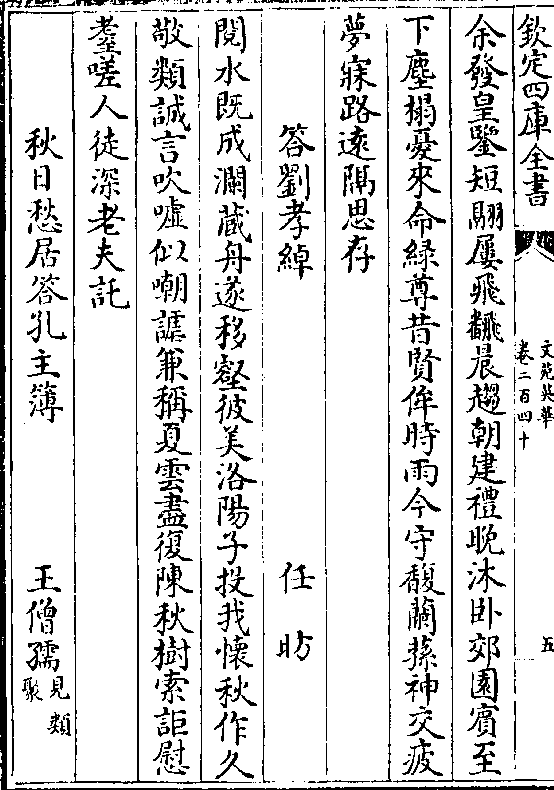 欽定四庫全書
文苑英華
卷二百四十
五
余發皇鑒短翮屢飛飜晨趨朝建禮晚沐卧郊園賓至
下塵榻憂來命緑尊昔賢侔時雨今守馥蘭蓀神交疲
夢寐路遠隔思存
答劉孝綽 任昉
閱水既成瀾蔵舟遂移壑彼美洛陽子投我懷秋作久
敬類誠言吹嘘似嘲謔兼稱夏雲盡復陳秋樹索詎慰
耋嗟人徒深老夫託
秋日愁居答孔主簿 王僧孺見類聚